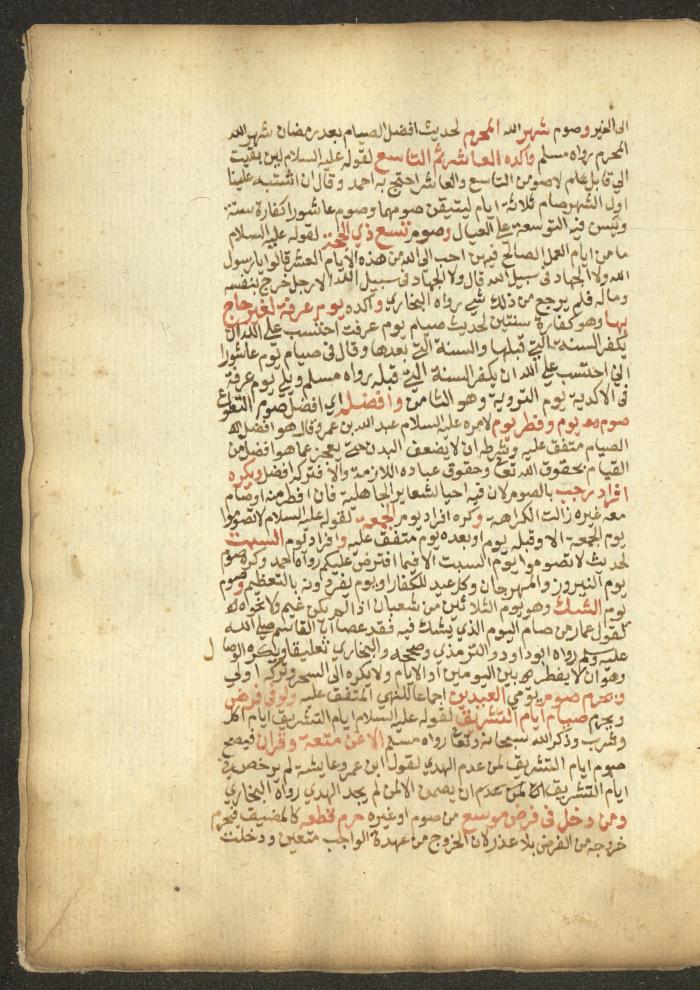 الى الغير وصوم شهر الله المحرم لحديث افضل الصيام بعد رمضان شهر الله
المحرم رواه مسلم واكده العاشر ثم التاسع لقوله عليه السلام لين بقيت
الى قابل لاصومن التاسع والعاشر احتج به احمد وقال ان اشتبه علينا
اول الشهر صام ثلاثة ايام ليتيقن صومها وصوم عاشورا كفارة سنة
ويسن فيه التوسعة على العيال وصوم تسع ذي الحجة لقوله عليه السلام
ما من ايام العمل الصالح فيهن احب الى الله من هذه الايام العشر قالوا يا رسول
الله ولا الجهاد في سبيل الله قال ولا الجهاد في سبيل الله الا رجل خرج بنفسه
وماله فلم يرجع من ذلك بشي رواه البخاري واكده يوم عرفة لغير حاج
بها وهو كفارة سنتين لحديث صيام يوم عرفة احتسب على الله ان
يكفر السنة التي قبلها والسنة التي بعدها وقال في صيام يوم عاشورا
اني احتسب على الله ان يكفر السنة التي قبله رواه مسلم ويلي يوم عرفة
في الاكدية يوم التروية وهو الثامن وافضله اي افضل صوم التطوع
صوم يوم وفطر يوم لامره عليه السلام عبد الله بن عمرو قال هو افضل
الصيام متفق عليه وشرطه ان لا يضعف البدن حتى يعجز عما هو افضل من
القيام بحقوق الله تعالى وحقوق عباده اللازمة والا فتركه افضل ويكره
افراد رجب بالصوم لان فيه احيا لشعاير الجاهلية فان افطر منه او صام
معه غيره زالت الكراهة وكره افراد يوم الجمعة لقوله عليه السلام لا تصوموا
يوم الجمعة الا وقبله يوم او بعده يوم متفق عليه وافراد يوم السبت
لحديث لا تصوموا يوم السبت الا فيما افترض عليكم رواه احمد وكره صوم
يوم النيروز والمهرجان وكل عيد للكفار او يوم يفردونه بالتعظيم وصوم
يوم الشك وهو يوم الثلاثين من شعبان اذا لم يكن غيم ولا نحوه
لقول عمار من صام اليوم الذي يشك فيه فقد عصى ابا القاسم صلى الله
عليه وسلم رواه ابو داود والترمذي وصححه والبخاري تعليقا ويكره الوصال
وهو ان لا يفطر بين اليومين او الايام ولا يكره الى السحر وتركه اولى
ويحرم صوم يومي العيدين اجماعا للنهي المتفق عليه ولو في فرض
ويحرم صيام ايام التشريق لقوله عليه السلام ايام التشريق ايام اكل
وشرب وذكر الله سبحانه وتعالى رواه مسلم الا عن متعة وقران فيصح
صوم ايام التشريق لمن عدم الهدي لقول ابن عمر وعايشة لم يرخص في
ايام التشريق ان يصمن الا لمن لم يجد الهدي رواه البخاري
ومن دخل في فرض موسع من صوم او غيره حرم قطعه كالمضيق فيحرم
خروجه من الفرض بلا عذر لان الخروج من عهدة الواجب متعين ودخلت